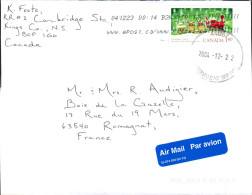 K. Foote,
R.R. #2 Cambridge Stn.
Kings Co., N.S.
B0P 1G0
Canada
041223 00:14
CANADA
2004-12-22
Mr. & Mrs. R. Audigier,
Bois de la Gazelle,
17 Rue du 19 Mars,
63540 Romagnat,
France
Air Mail Par avion